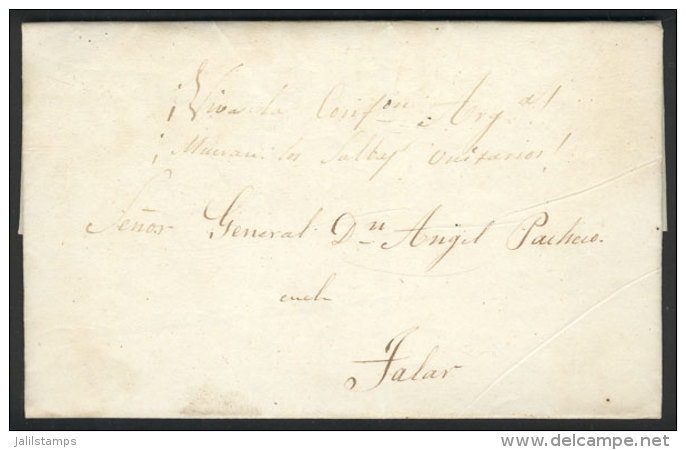 ¡Viva la Confon. Arga!
¡Mueran los Salvaj Unitarios!
Señor General Dn Angel Pacheco.
en el
Talar
jalilstamps
www.delcampe.net